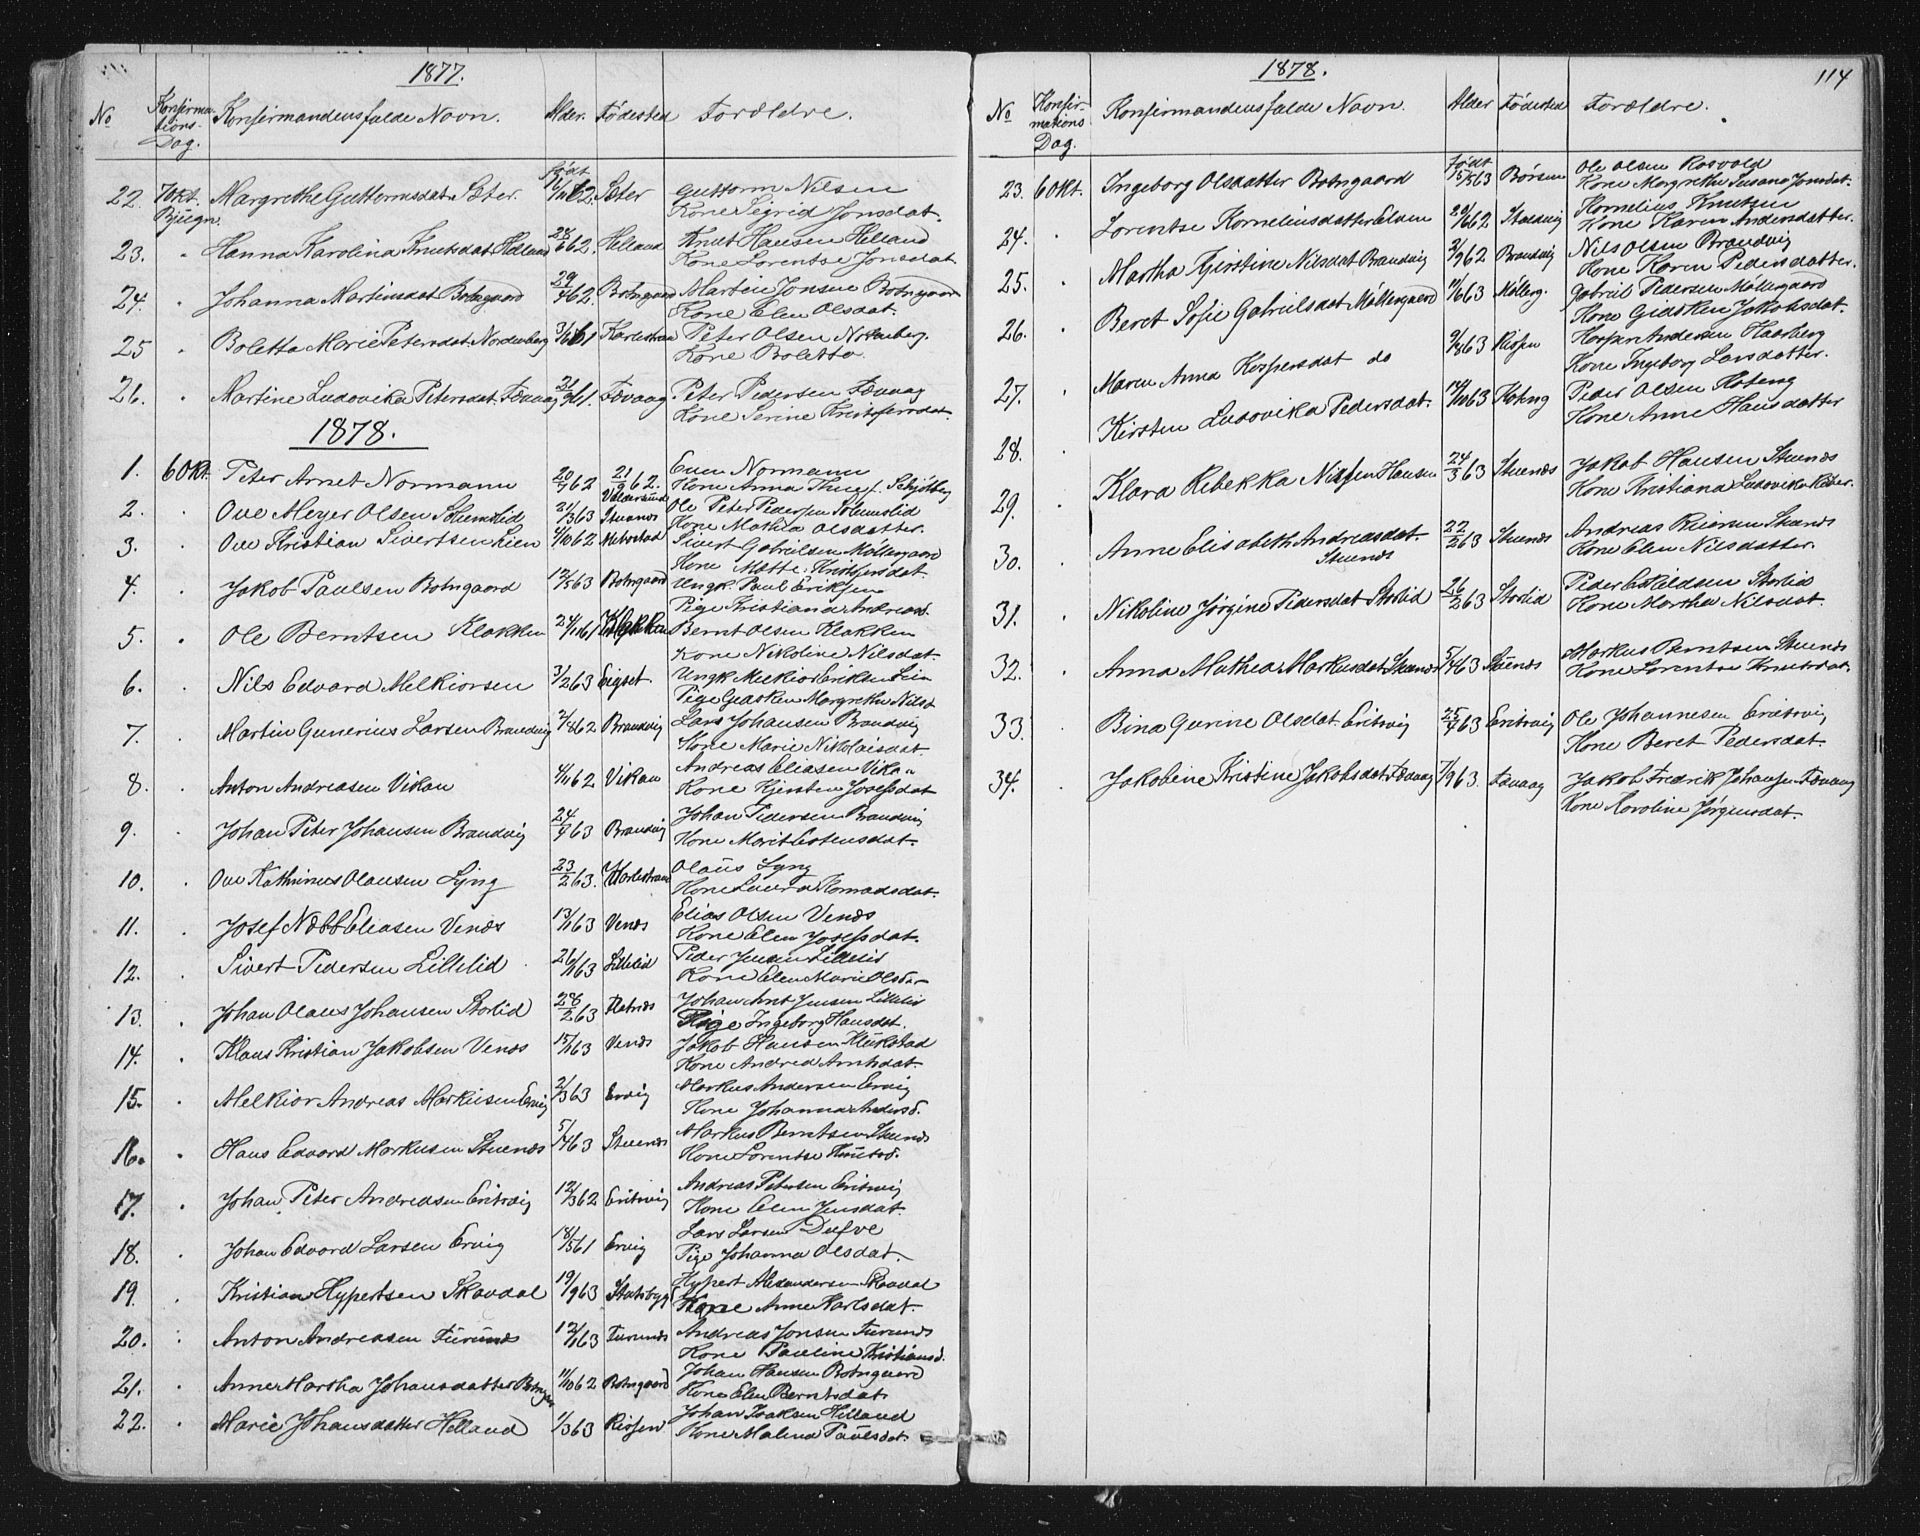 1877.
No Konfirmations-Dag. Konfirmandens fulde Navn. Alder. Fødested Forældre.
22. 7 Okt. Bjugn. Margrethe Guttormsdat. Sæter. Født 62. Sæter Guttorm Nilsen
Kone Sigrid Jonsdat.
23. " Hanna Karolina Knutsdat Helland 28/6 62. Helland Knut Hansen Helland
Kone Lorentse Jonsdat.
24. " Johanna Martinsdat Botngaard 29/4 62. Botngaard Martin Jonsen Botngaard
Kone Elen Olsdat.
25 " Boletta Marie Petersdat Nordenberg 61 Karlestrand Peter Olsen Nordenberg.
Kone Boletta.
26. " Martine Ludovika Petersdat. Fævaag 61. Fævaag Peter Pedersen Fævaag
Kone Serine Kristofersdat.
1878.
1. 6 Okt. Peter Arnet Normann 20/7 62 21/9 62. Valdersund Even Normann
Kone Anna f. Schjølberg
2. " Ove Meyer Olsen Solemslid 21/3 63 Stuenæs Ole Peter Pedersen Solemslid
Kone Mathea Olsdatter.
3. " Ove Kristian Sivertsen Lien 4/10 62 Mebostad Sivert Gabrielsen Møllergaard
Kone Mætte Kristofersdat.
4. " Jakob Paulsen Botngaard 12/5 63 Botngaard Ungk. Paul Eriksen
Pige Kristiana Andreasd.
5. " Ole Berntsen Klakken 24/11 61 Klakken Bernt Olsen Klakken
Kone Nikoline Nilsdat.
6. " Nils Edvard Melkiorsen 3/2 63 Eigset. Ungk Melkior Eriksen Lien
Pige Gjasken Margrethe Nilsd.
7. " Martin Gunerius Larsen Brandvig 2/8 62 Brandvig Lars Johansen Brandvig
Kone Marie Nikolaisdat.
8. " Anton Andreasen Vikan 4/11 62 Vikan Andreas Eliasen Vikan
Kone Kjersten Josefsdat
9. " Johan Peter Johansen Brandvig 24/7 63 Brandvig Johan Pedersen Brandvig
Kone Marit Estensdat.
10. " Ove Kathinus Olausen Lyng 23/2 63. Karlestrand Olaus Lyng
Kone Laura Tomasdat.
11. " Josef Næbb Eliasen Venæs 13/1 63 Venæs Elias Olsen Venæs
Kone Elen Josefsdat.
12. " Sivert Pedersen Lillelid 26/1 63 Lillelid Peder Jensen Lillelid
Kone Elen Marie Olsd.
13. " Johan Olaus Johansen Storlid 28/2 63 Johan Arnt Jensen Lillelid
Pige Ingeborg Hansdat.
14. " Klaus Kristian Jakobsen Venæs 15/1 63 Venæs Jakob Hansen
Kone Andrea Arntsdat.
15. " Melkior Andreas Markusen Ervig 2/3 63 Ervig Markus Andersen Ervig
Kone Johanna Andersd.
16. " Hans Edvard Markusen Stuenæs 5/4 63 Stuenæs Markus Berntsen Stuenæs
Kone Lorentse Knutsd.
17. " Johan Peter Andreasen Eritsvig 12/3 62 Eritsvig Andreas Petersen Eritsvig
Kone Elen Jensdat.
18. " Johan Edvard Larsen Ervig 18/5 61 Ervig Lars Larsen
Pige Johanna Olsdat.
19. " Kristian Hypertsen Skavdal 19/9 63 Statsbygd Hypert Alexandersen Skavdal
Kone Anne Karlsdat.
20. " Anton Andreasen Furunæs 12/1 63 Furunæs Andreas Jonsen Furunæs
Kone Pauline Kristiansd.
21. " Anne Martha Johansdatter Botngen 11/10 62 Botngaard Johan Hansen Botngaard
Kone Elen Berntsdat.
22. " Marie Johansdatter Helland 1/3 63 Rissen Johan Isaksen Helland
Kone Malena Paulsdat.
1878.
114
No Konfirmations Dag. Konfirmandens fulde Navn. Alder Fødested Forældre.
23. 6 Okt. Ingeborg Olsdatter Botngaard Født 15/5 63 Børsen Ole Olsen Rosvold
Kone Margrethe Susana Jonsdat.
24. " Lorentse Korneliusdatter Elven 29/6 62 Stadsvig Kornelius Knutsen
Kone Karen Andersdatter.
25. " Martha Kjerstine Nilsdat Brandvig 2/9 62 Brandvig Nils Olsen Brandvig
Kone Karen Pedersdatter.
26. " Beret Sofie Gabrielsdat Møllergaard 11/6 63 Møllerg. Gabriel Pedersen Møllergaard
Kone Gidsken Jakobsdat.
27. " Maren Anna Kaspersdat do 9/8 63 Rissen Kasper Andersen Haarberg
Kone Ingeborg Larsdatter.
28. Kirsten Ludovika Pedersdat. 14/10 63 Koteng Peder Olsen Koteng
Kone Anne Hansdatter
29. " Klara Rebekka Nielsen Hansen 24/3 63 Stuenæs Jakob Hansen Stuenæs
Kone Kristiana Ludovika
30. " Anne Elisabeth Andreasdat. Stuenæs 22/2 63 Stuenæs Andreas Stuenæs
Kone Elen Nilsdatter.
31. " Nikoline Jørgine Pedersdat Storlid 26/2 63 Storlid Peder Eskildsen Storlid
Kone Martha Nilsdat.
32. " Anna Mathea Markusdat Stuenæs 5/4 63 Stuenæs Markus Berntsen Stuenæs
Kone Lorentse Knutsdat.
33. " Bina Gurine Olsdat Eritsvig 25/7 63 Eritsvig Ole Johannesen Eritsvig
Kone Beret Pedersdat.
34. " Jakobine Kristine Jakobsdat Fævaag 7/9 63. Fævaag Jakob Fredrik Johansen Fævaag
Kone Karoline Jørgensdat.